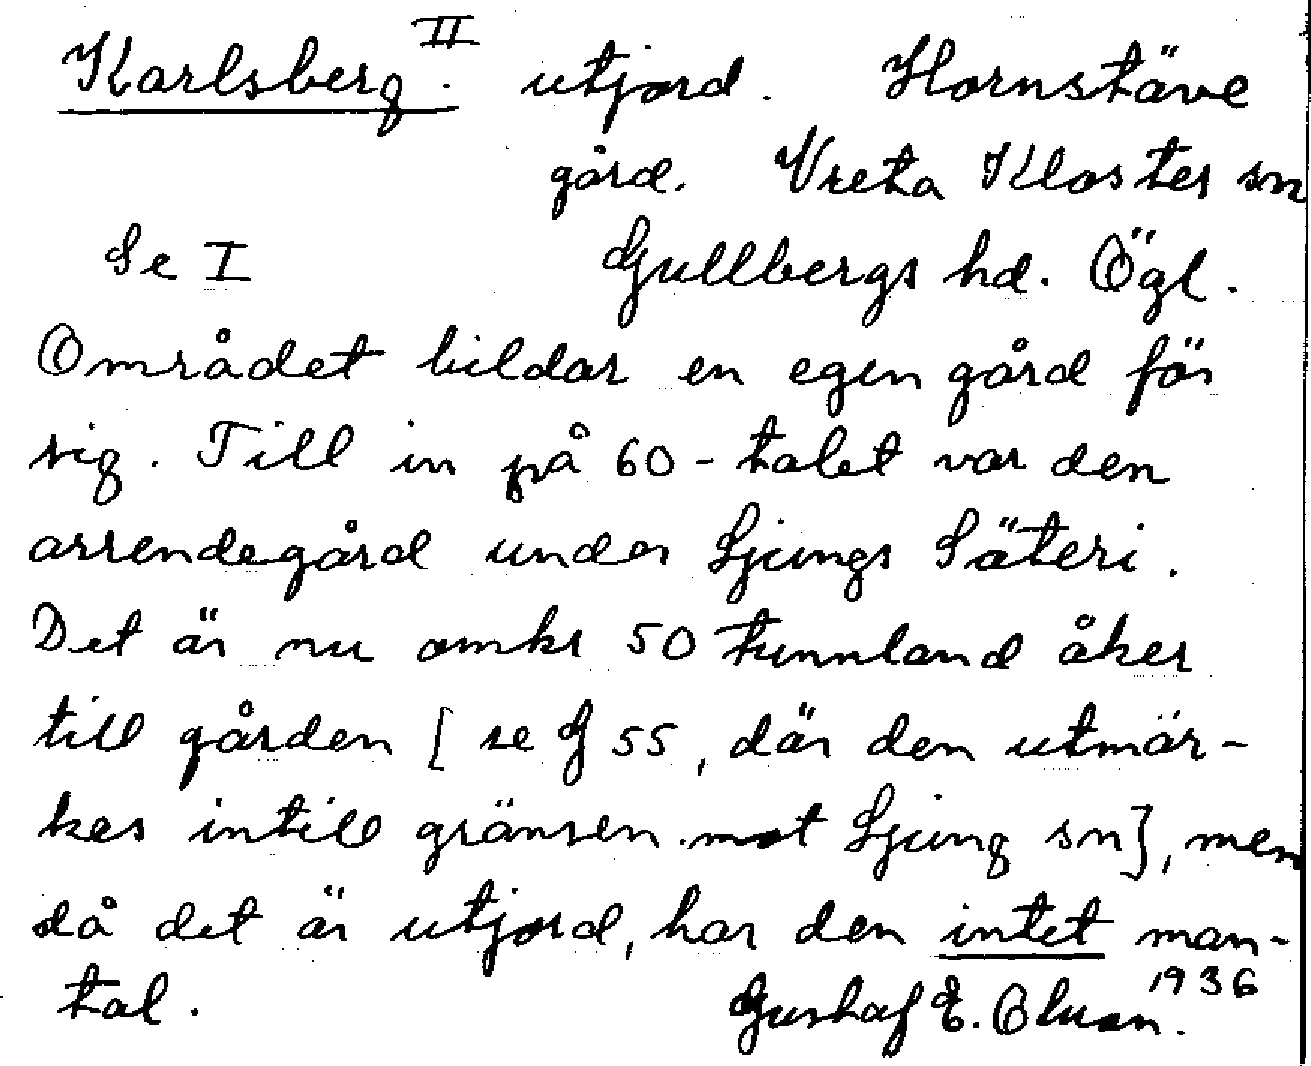 Karlsberg II. utjord. Hornstäve
gård. Vreta Kloster sn
Se I Gullbergs hd. Ögl.
Området bildar en egen gård för
sig. Till in på 60-talet var den
arrendegård under Ljungs Säteri.
Det är nu omkr 50 tunnland åker
till gården [se G 55, där den utmär-
kes intill gränsen mot Ljung sn], men
då det är utjord, har den intet man-
tal. Gustaf E. 1936